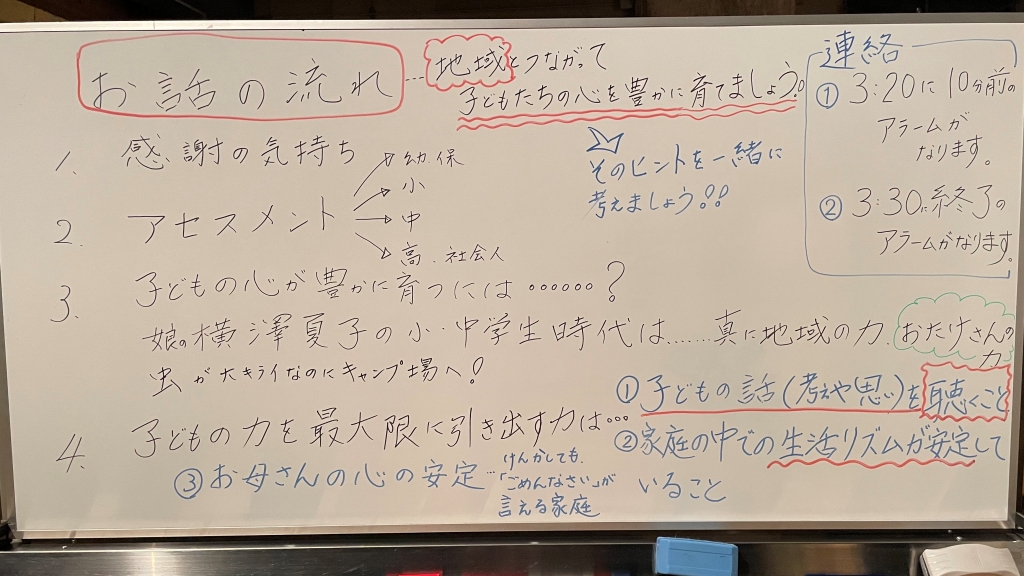 お話の流れ…地域とつながって
子どもたちの心を豊かに育てましょう。
そのヒントを一緒に
考えましょう!!
連絡
① 3:20に10分前の
アラームが
なります。
② 3:30に終了の
アラームがなります。
1. 感謝の気持ち
2. アセスメント
幼.保
小
中
高.社会人
3. 子どもの心が豊かに育つには……?
娘の横澤夏子の小・中学生時代は……真に地域の力.おたけさんの
力
虫が大キライなのにキャンプ場へ!
4. 子どもの力を最大限に引き出す力は…
① 子どもの話(考えや思い)を聴くこと
② 家庭の中での生活リズムが安定して
いること
③ お母さんの心の安定…けんかしても、
「ごめんなさい」が
言える家庭